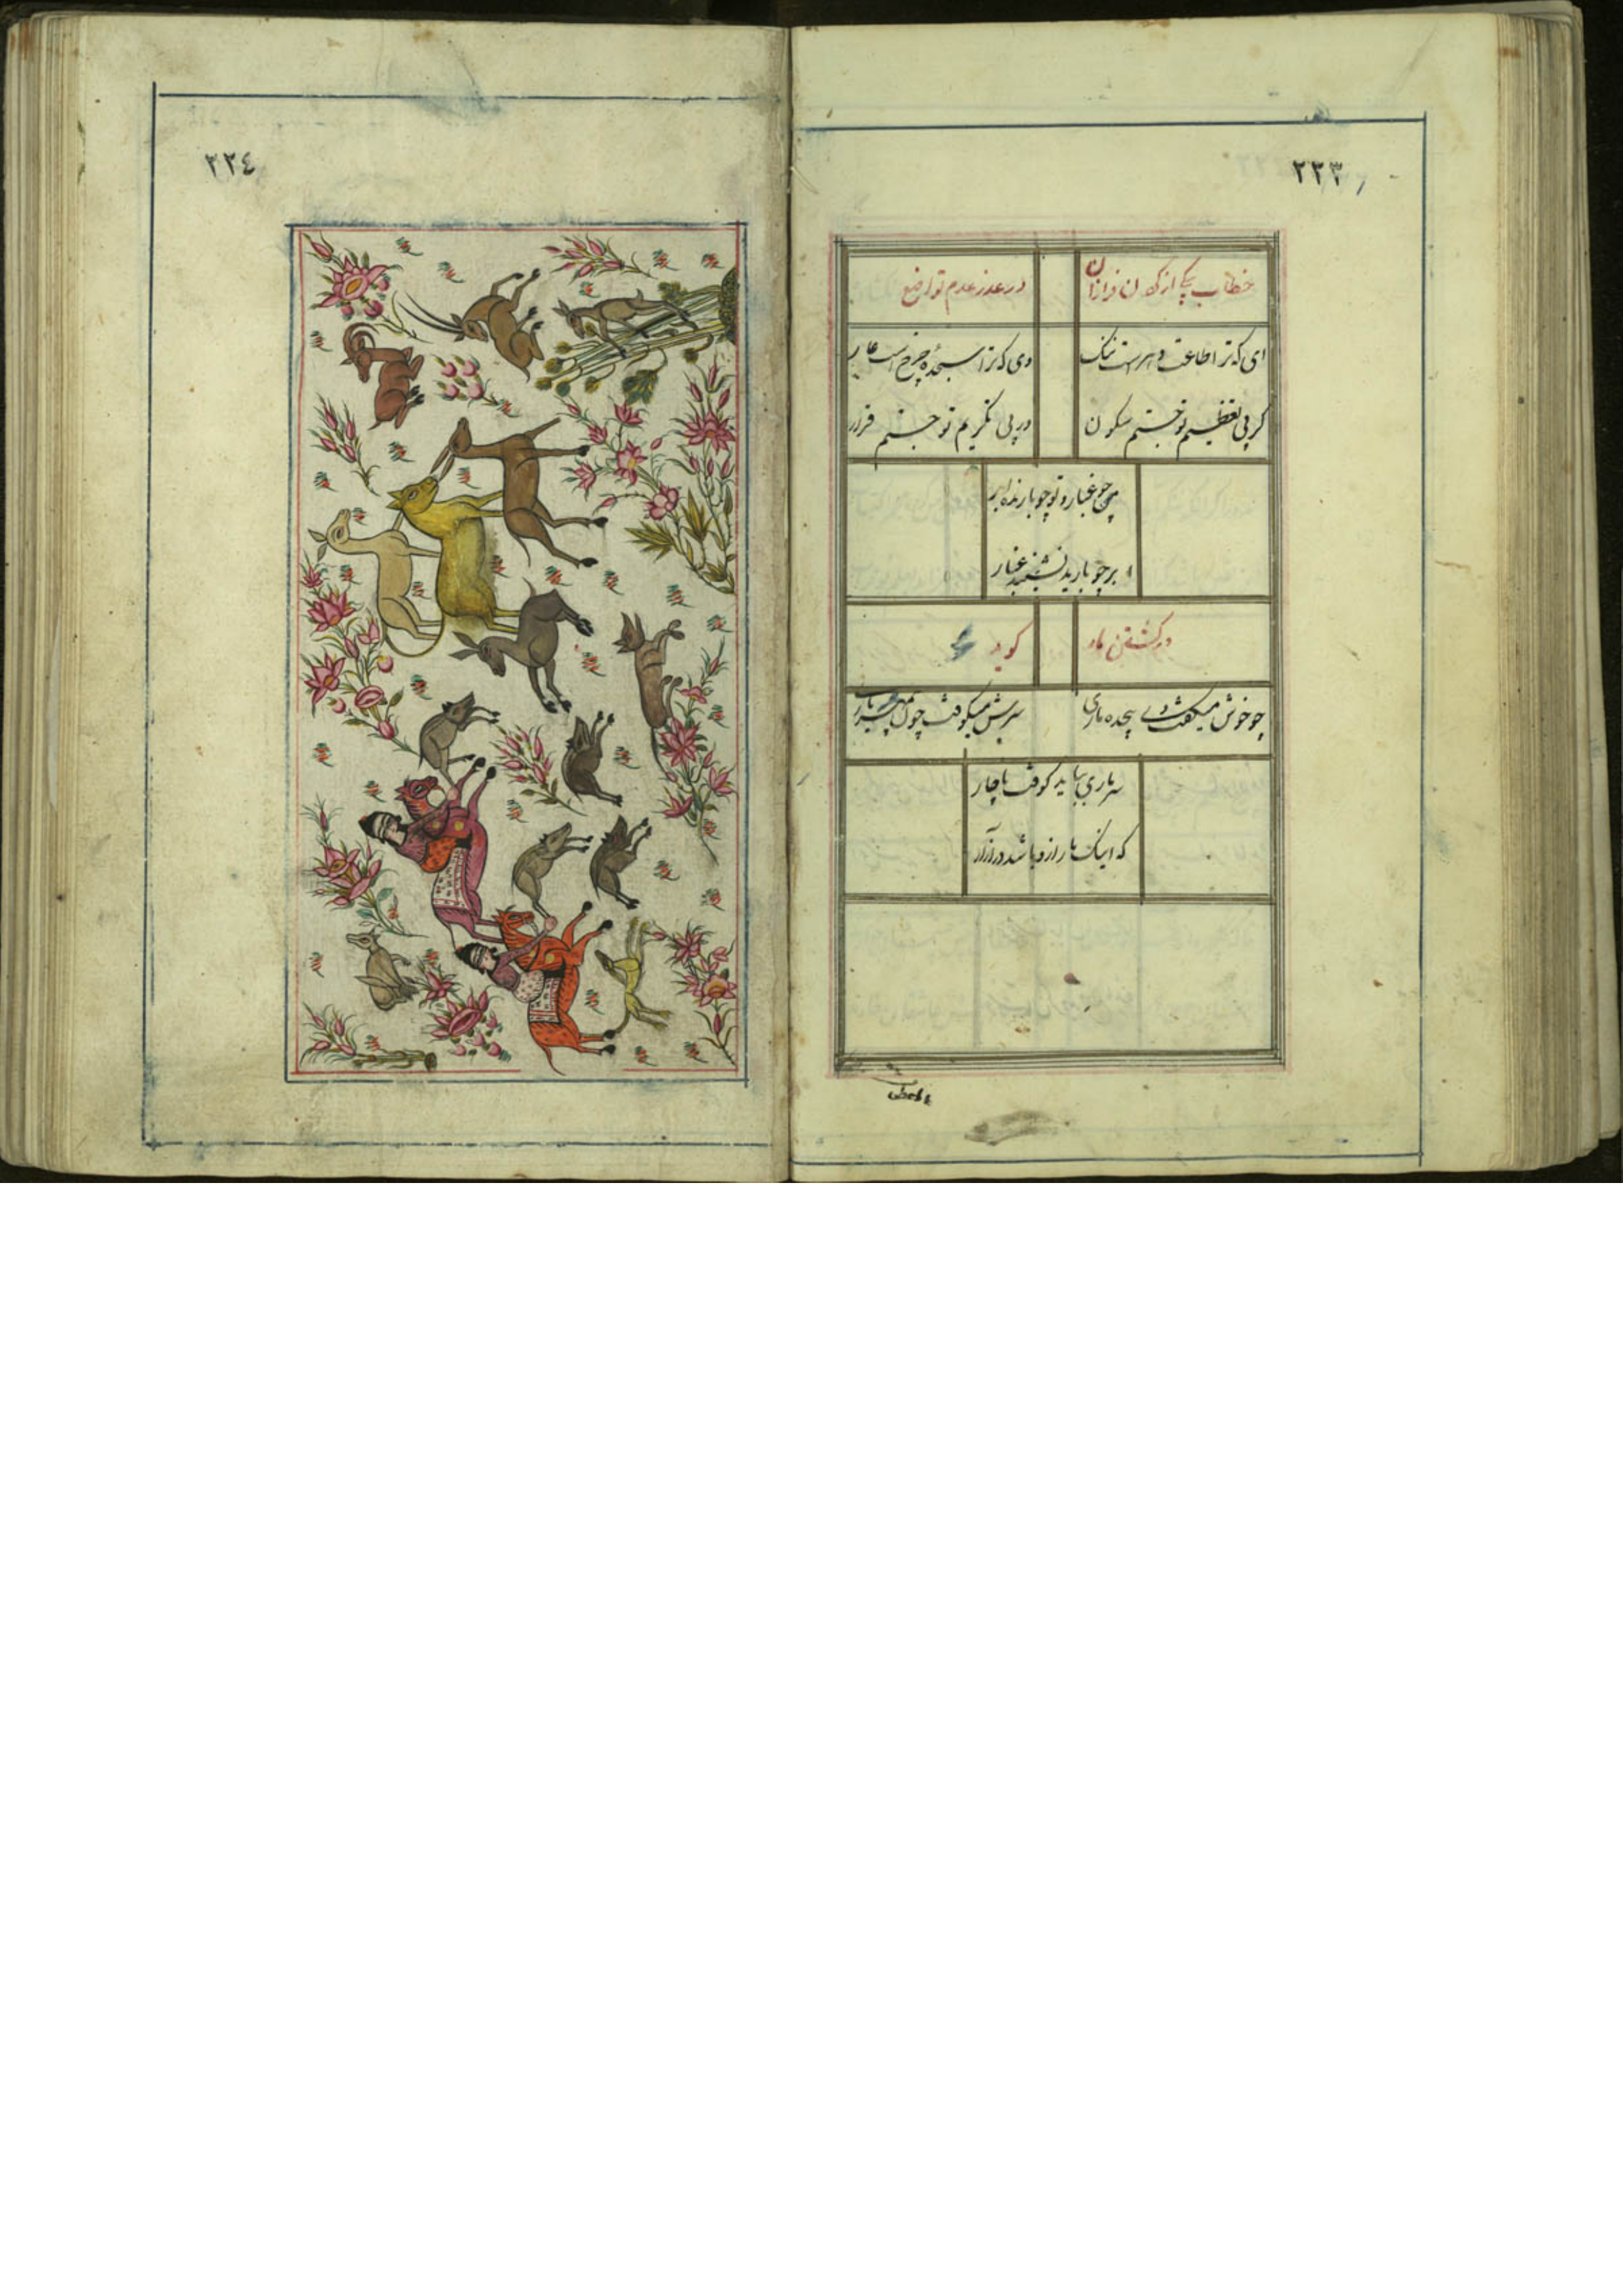 ٢٢٣
خطاب یکی از کردن فرازان
در عذر عدم تواضع
ای که ترا طاعت دهرست ننک
وی که ترا سجده چرخ است عار
کر پی تعظیم تو جستم سکون
در پی تکریم تو جستم قرار
من چو غبار و تو چو بارنده ابر
ابر چو بارید نشیند غبار
در کشتن مار
کوید
چو خوش میکفت پیچده ماری
سرش میکوفت چون
سر ماری بباید کوفت ناچار
که اینک مار ازو باشد در آزار
٢٢٤